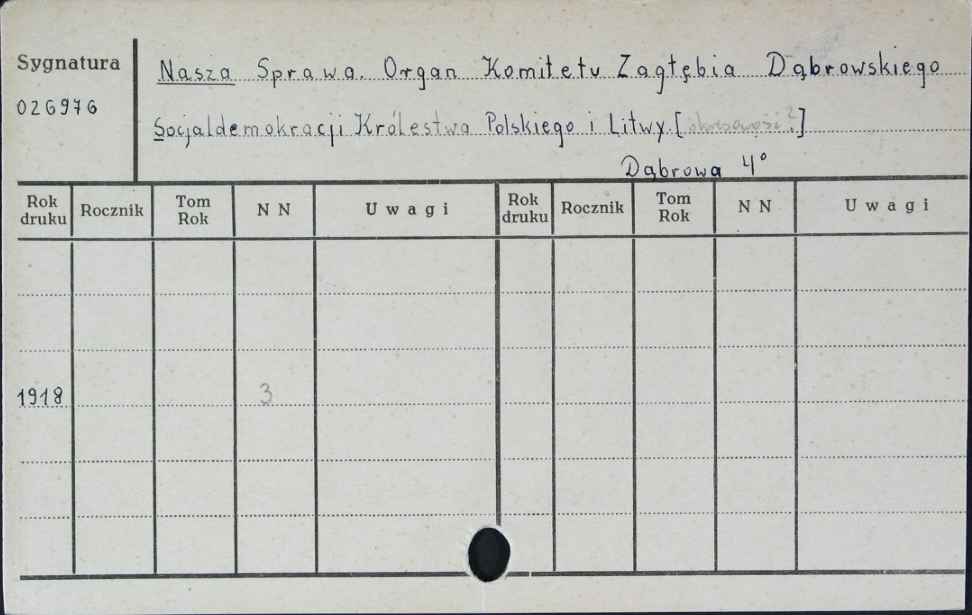 Sygnatura
026976
Nasza Sprawa. Organ Komitetu Zagłębia Dąbrowskiego
Socjaldemokracji Królestwa Polskiego i Litwy. [ ? ]
Dąbrowa 4°
Rok druku Rocznik Tom Rok N N Uwagi Rok druku Rocznik Tom Rok N N Uwagi
1918 3